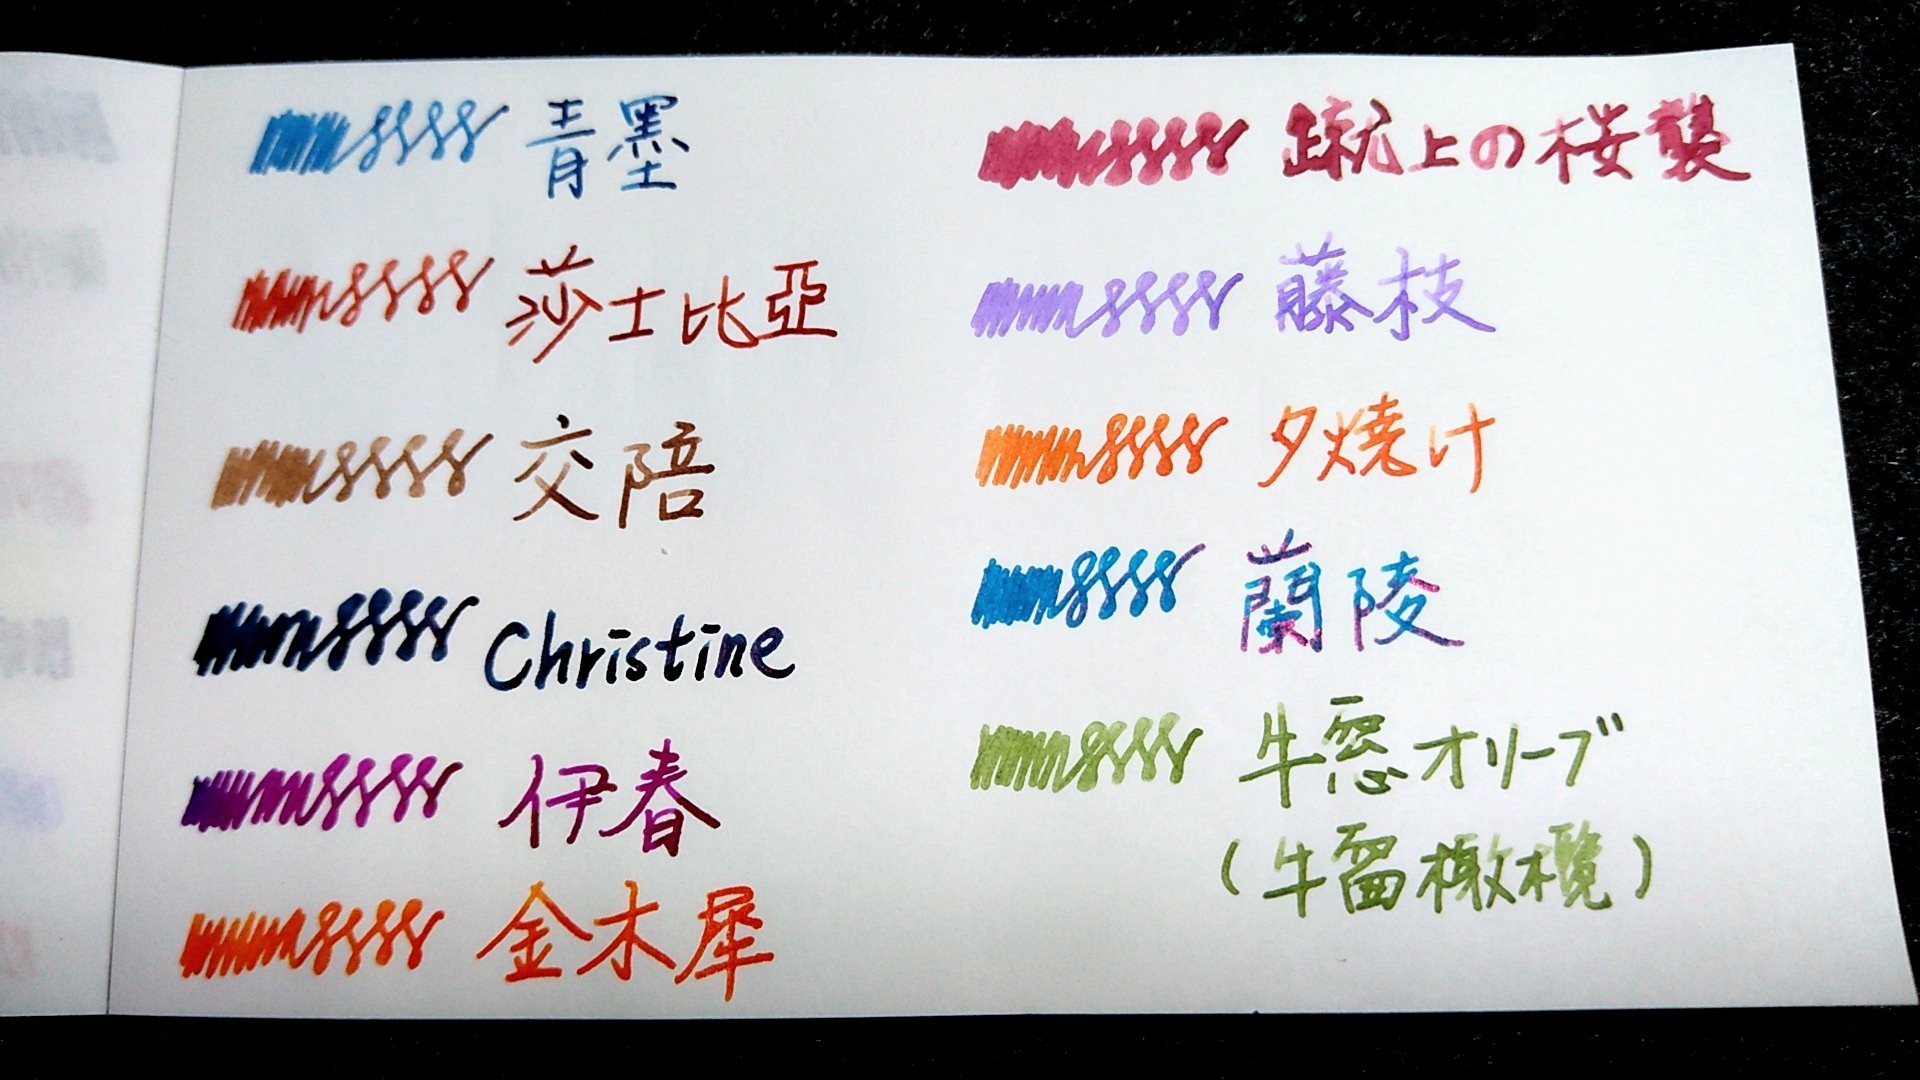 青墨
莎士比亞
交陪
Christine
伊春
金木犀
蹴上の桜襲
藤枝
夕焼け
蘭陵
牛窓オリーブ
(牛留橄欖)